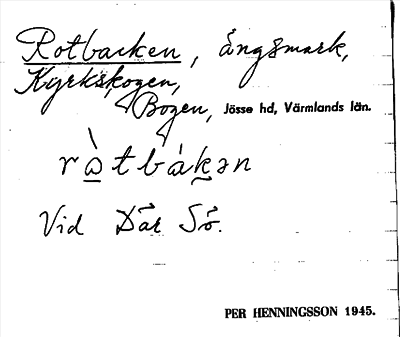 Rotbacken, ängsmark,
Kyrkskogen,
Bogen, Jösse hd, Värmlands län.
rò̱tbákən
Vid
PER HENNINGSSON 1945.